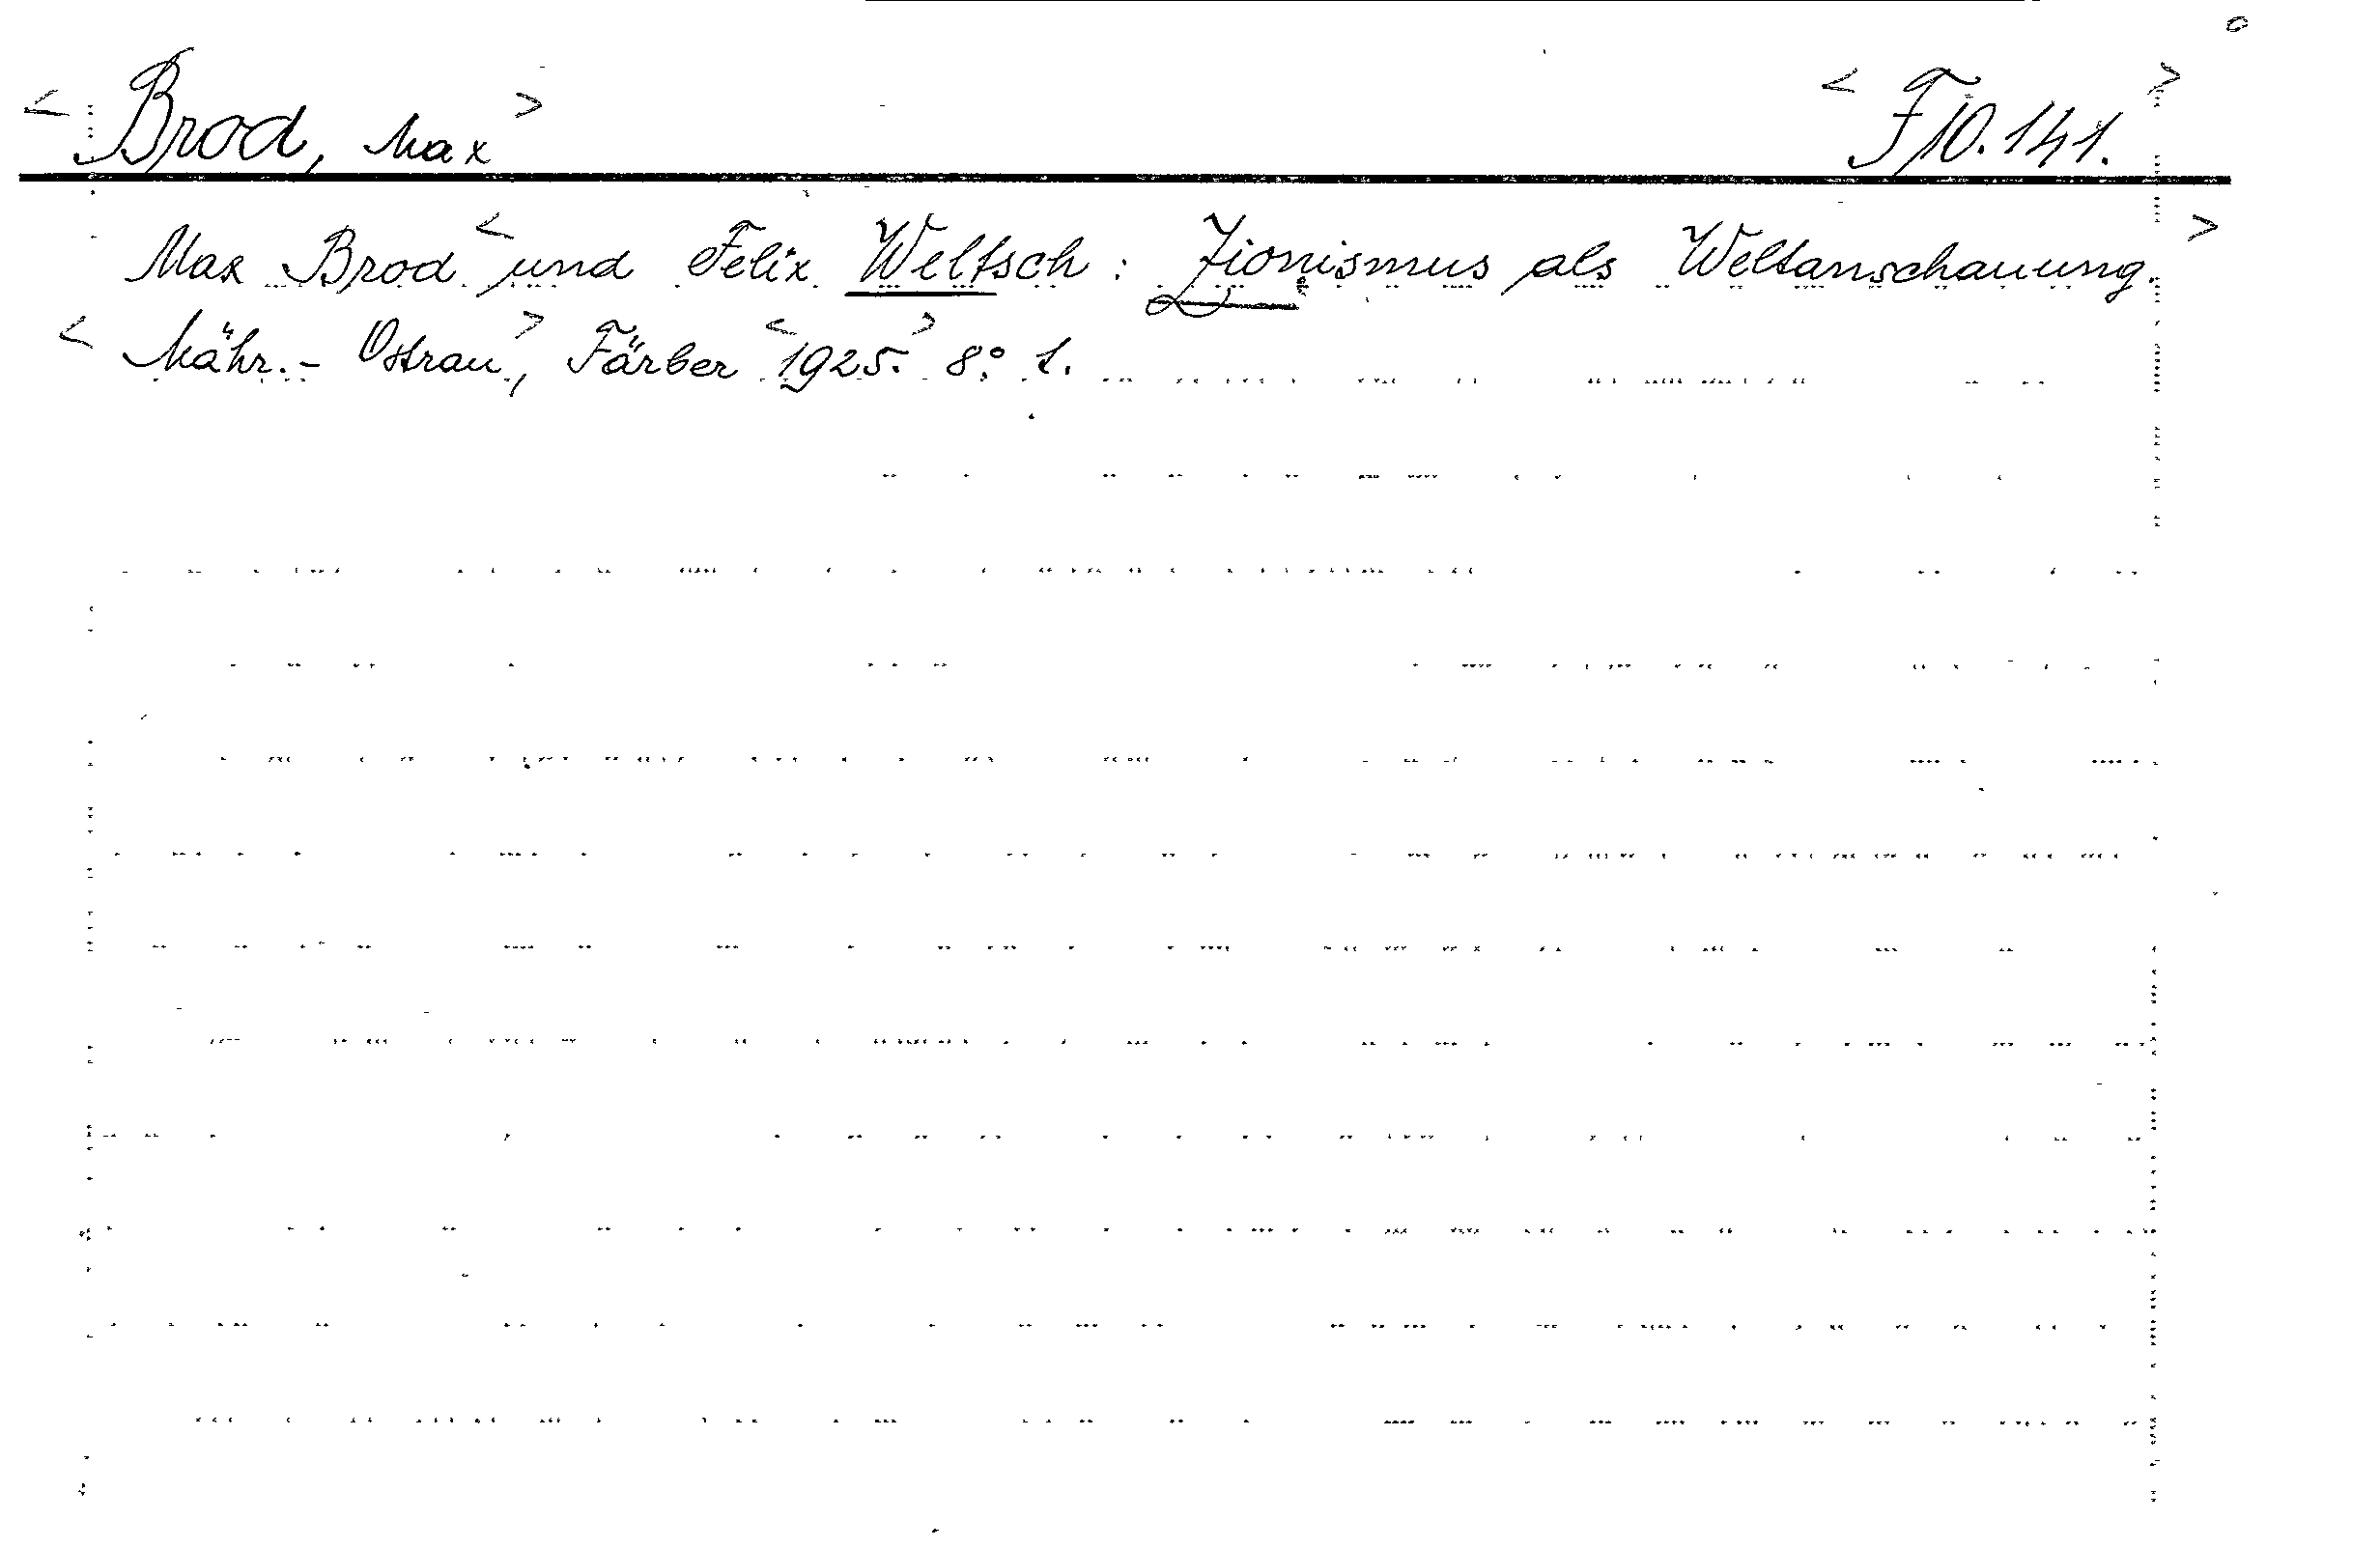 < Brod, Max > < F 10.141. >
Max Brod < und Felix Weltsch : Zionismus als Weltanschauung. >
< Mähr.- Ostrau >, Färber < 1925. > 8.° 1.